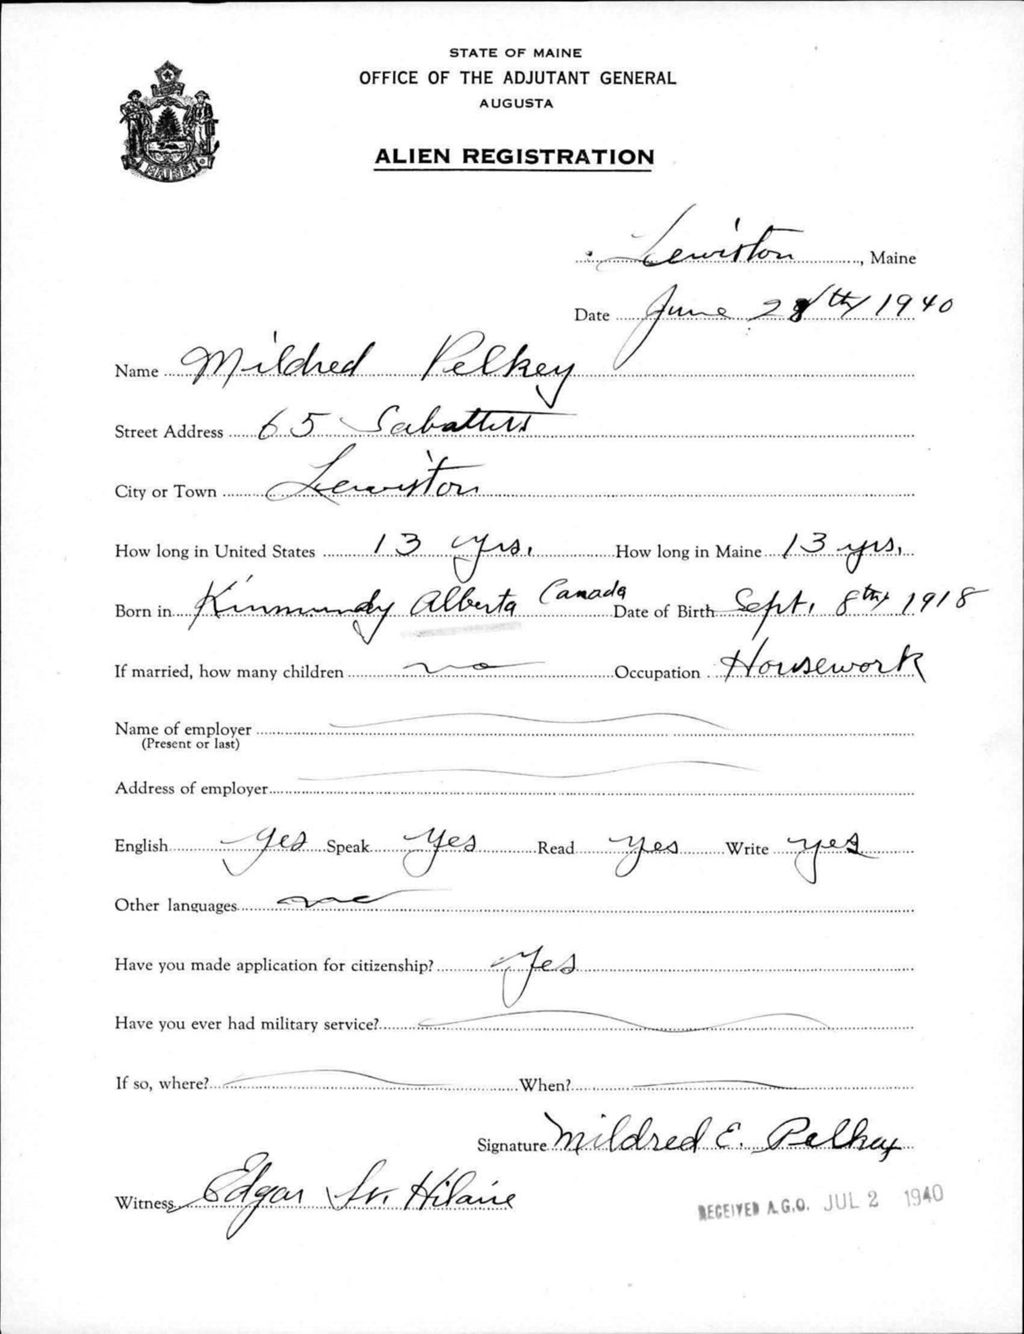 STATE OF MAINE
OFFICE OF THE ADJUTANT GENERAL
AUGUSTA
ALIEN REGISTRATION
MAINE
Lewiston, Maine
Date June 28th 1940
Name Mildred Pelkey
Street Address 65 Sabattus
City or Town Lewiston
How long in United States 13 yrs. How long in Maine 13 yrs.
Born in Kinmundy Alberta Canada Date of Birth Sept. 8th 1918
If married, how many children no Occupation Housework
Name of employer
(Present or last)
Address of employer
English yes Speak Yes Read yes Write yes
Other languages no
Have you made application for citizenship? Yes
Have you ever had military service?
If so, where? When?
Signature Mildred E. Pelkey
Witness Edgar St. Hilaire
RECEIVED A.G.O. JUL 2 1940